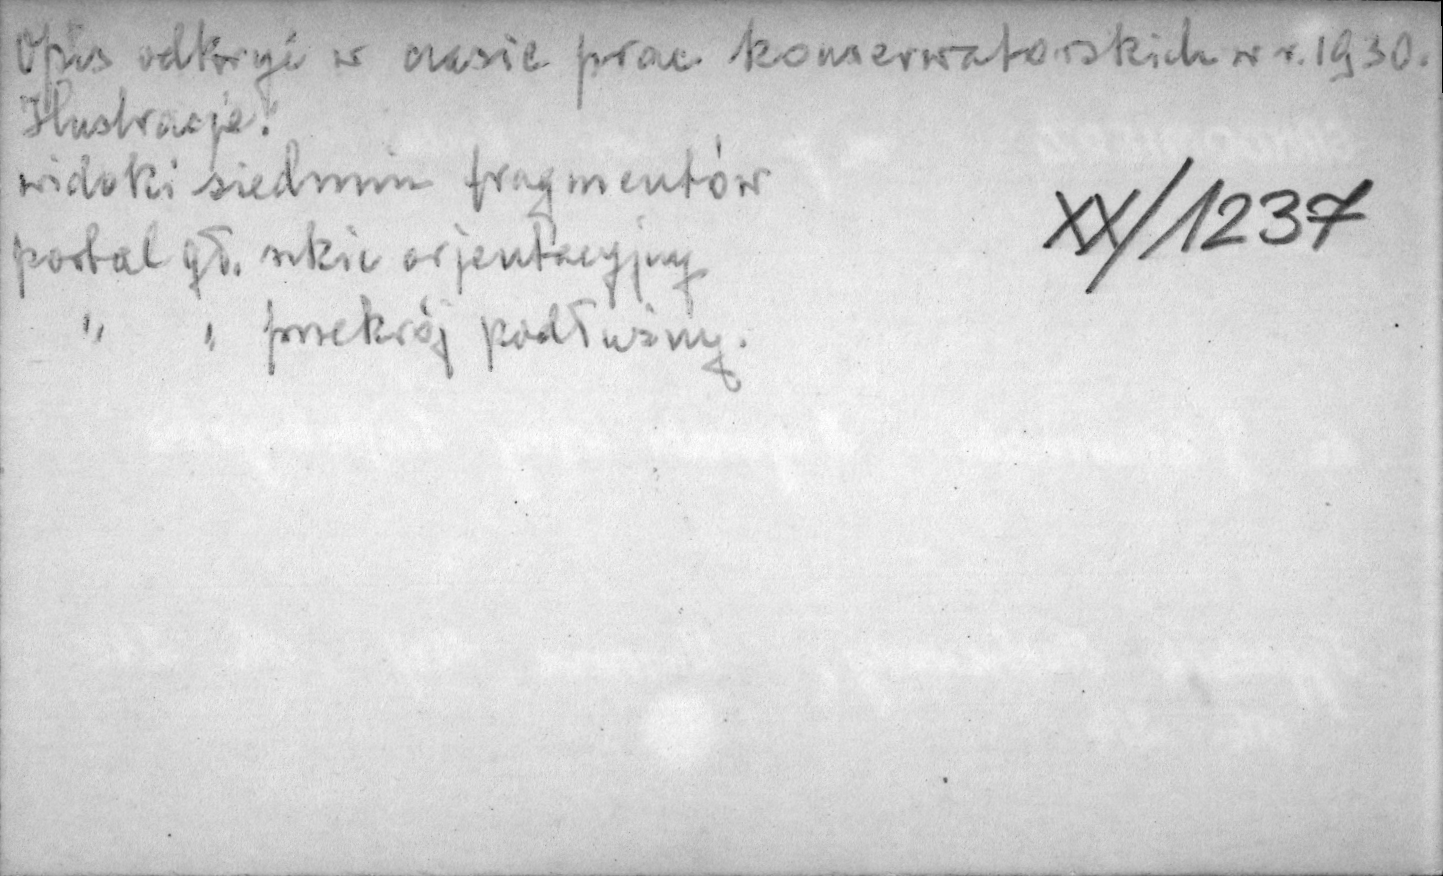 Opis odkryć w czasie prac konserwatorskich w r. 1930.
Ilustracje:
widoki siedmiu fragmentów
XX/1237
portal gł. szkic orjentacyjny
" " przekrój podłużny.